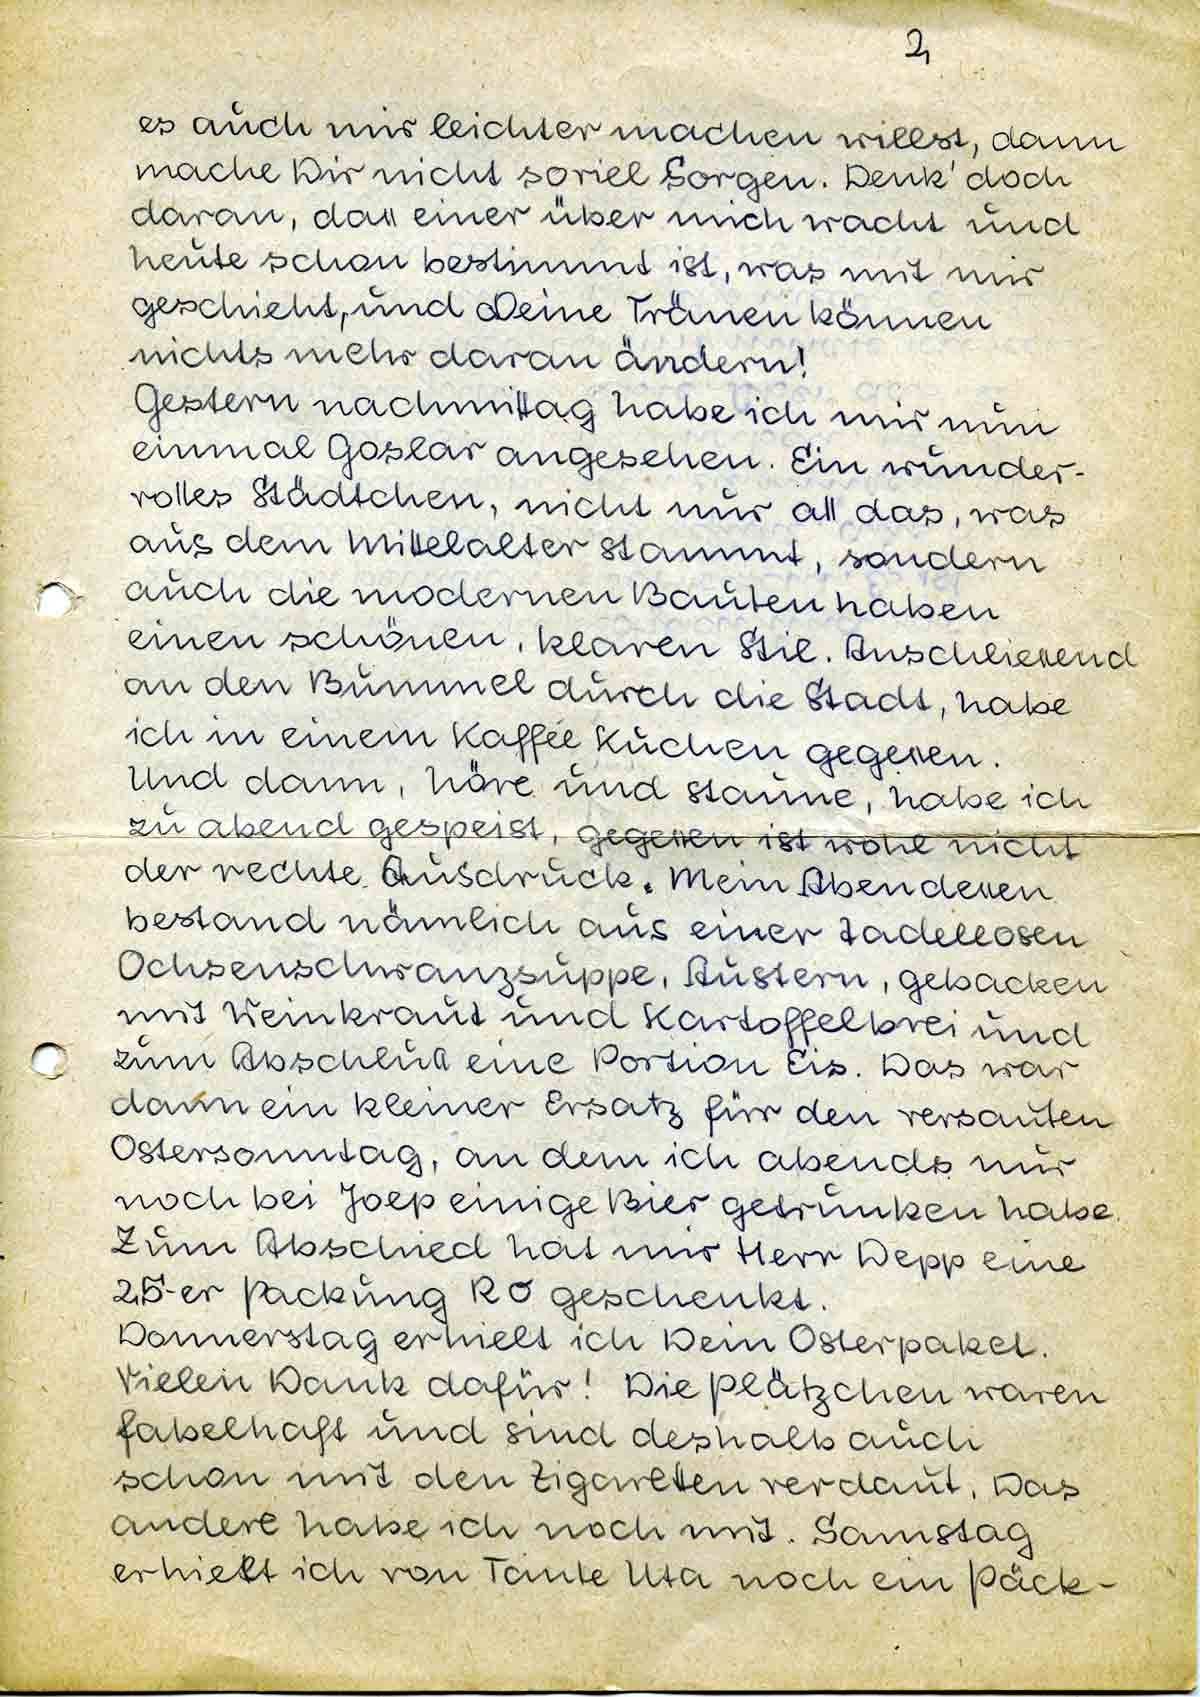 2,
es auch mir leichter machen willst, dann
mache Dir nicht soviel Sorgen. Denk' doch
daran, dass einer über mich wacht und
heute schon bestimmt ist, was mit mir
geschieht, und Deine Tränen können
nichts mehr daran ändern!
Gestern nachmittag habe ich mir nun
einmal Goslar angesehen. Ein wunder-
volles Städtchen, nicht nur all das, was
aus dem Mittelalter stammt, sondern
auch die modernen Bauten haben
einen schönen, klaren Stil. Anschliessend
an den Bummel durch die Stadt, habe
ich in einem Kaffée Kuchen gegessen.
Und dann, höre und staune, habe ich
zu abend gespeist, gegessen ist wohl nicht
der rechte Ausdruck. Mein Abendessen
bestand nämlich aus einer tadellosen
Ochsenschwanzsuppe, Austern, gebacken
mit Weinkraut und Kartoffelbrei und
zum Abschluss eine Portion Eis. Das war
dann ein kleiner Ersatz für den versauten
Ostersonntag, an dem ich abends nur
noch bei Joep einige Bier getrunken habe.
Zum Abschied hat mir Herr Depp eine
25-er Packung R6 geschenkt.
Donnerstag erhielt ich Dein Osterpaket.
Vielen Dank dafür! Die Plätzchen waren
fabelhaft und sind deshalb auch
schon mit den Zigaretten verdaut. Das
andere habe ich noch mit. Samstag
erhielt ich von Tante Uta noch ein Päck-